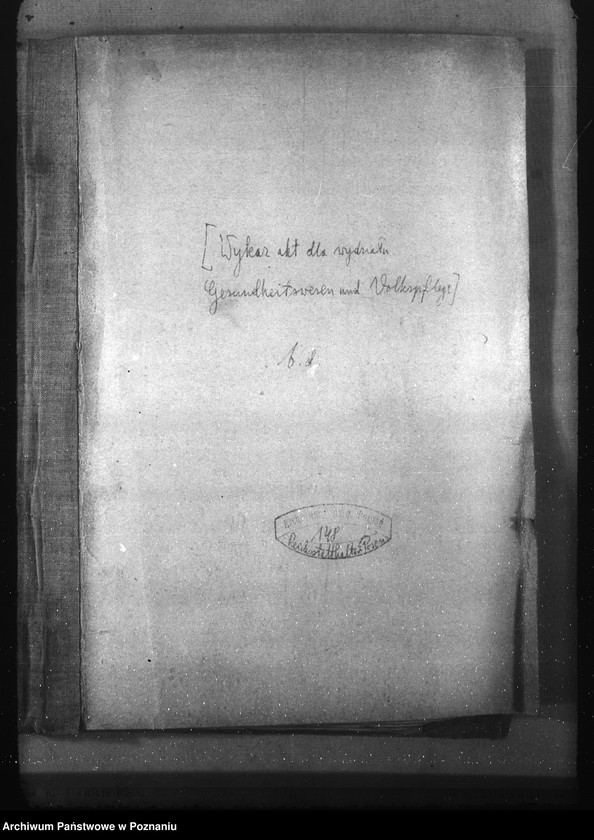 [Wykaz akt dla wydziału
Gesundheitswesen und Volkspflege]
b. d.
148
Reichsstatthalter Posen
Archiwum Państwowe w Poznaniu